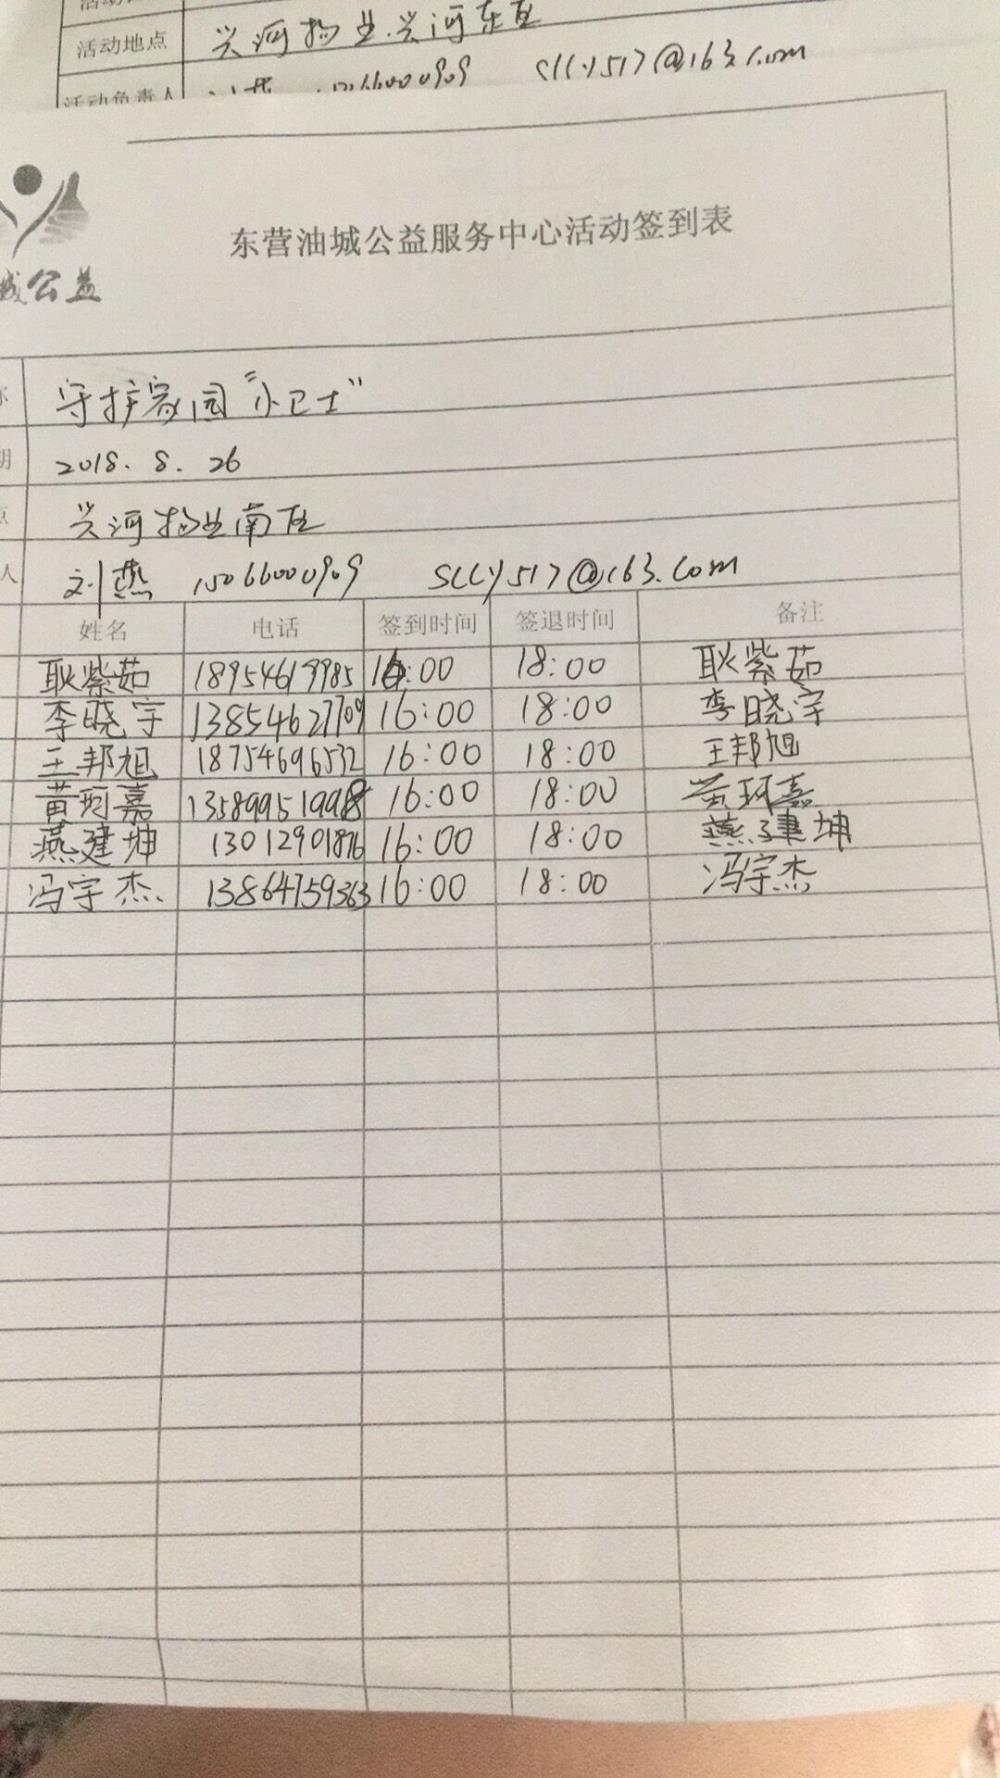 活动地点 兴河物业兴河东区
活动负责人 slly517@163.com
东营油城公益服务中心活动签到表
城公益
守护家园“小卫士”
期 2018.8.26
点 兴河物业南区
人 刘燕 15066000909 slly517@163.com
姓名 电话 签到时间 签退时间 备注
耿紫茹 18954619985 16:00 18:00 耿紫茹
李晓宇 13854627709 16:00 18:00 李晓宇
王邦旭 18754696532 16:00 18:00 王邦旭
黄珂嘉 13589951998 16:00 18:00 黄珂嘉
燕建坤 13012901876 16:00 18:00 燕建坤
冯宇杰 13864759363 16:00 18:00 冯宇杰